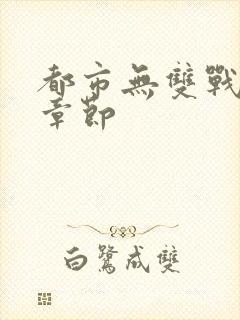 都市無雙戰
章節
白鷺成雙